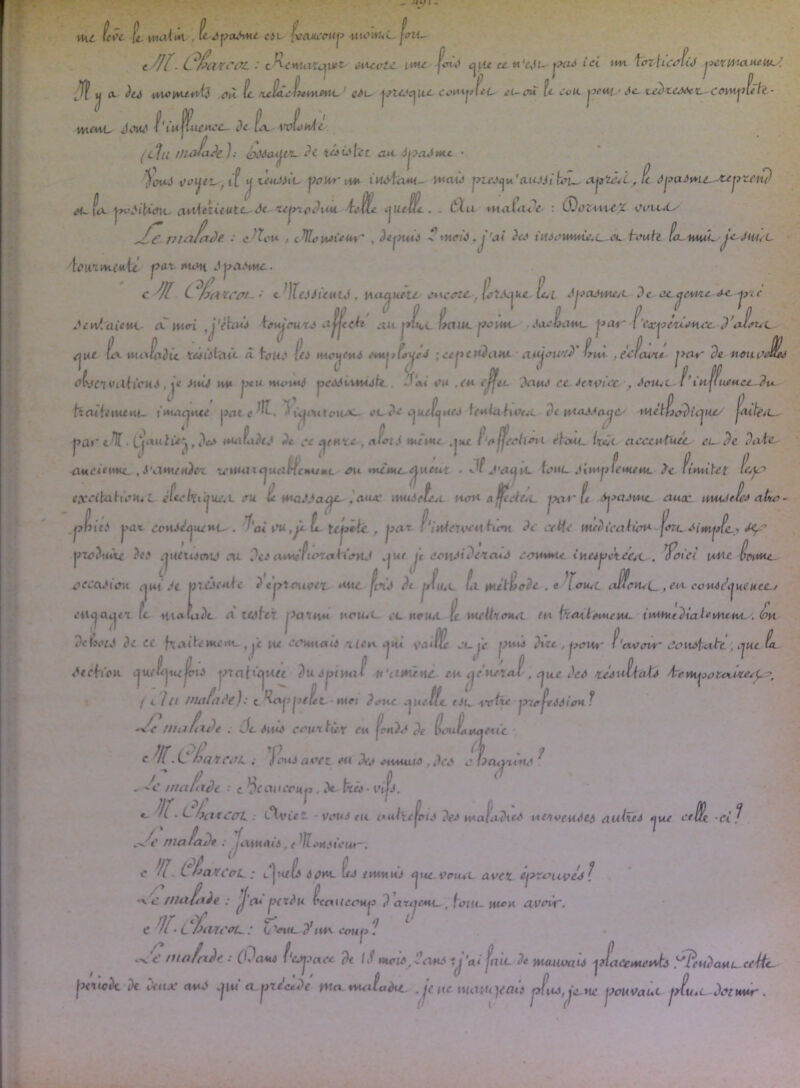 - 491 -
me lève le matin, le spasme est beaucoup moins fort.
M. Charcot : Remarquez encore une fois que ce n'est pas ici un torticolis permanent.
Il y a des moments où le relâchement est presque complet et où le cou peut se redresser complète-
ment sous l'influence de la volonté.
(Au malade) : Essayez de résister au spasme.
Vous voyez, il y réussit pour un instant mais presqu'aussitôt après, le spasme reprend
et la position antérieure se reproduit telle quelle.. Au malade : Dormez vous
Le malade : Non, Monsieur, depuis 2 mois, j'ai des insomnies et toute la nuit je suis
tourmenté par mon spasme.
M. Charcot : Messieurs, naguère encore, lorsque les spasmes de ce genre se pré
sentaient à moi, j'étais toujours affecté au plus haut point, sachant par l'expérience d'alors
que la maladie résistait à tous les moyens employés ; cependant aujourd'hui, éclairé par de nouvelles
observations, je suis un peu moins pessimiste. J'ai vu, en effet dans ce service, sous l'influence du
traitement imaginé par M. Vigouroux et de quelques tentatives de massage méthodique faites
par M. Gautiez, des malades de ce genre, alors même que l'affection était très accentuée et de date
ancienne, s'amender remarquablement ou même guérir. Il s'agit tout simplement de limiter les
excitations électriques ou le massage, aux muscles non affectés par le spasme aux muscles atro-
phiés par conséquent. J'ai vu, je le répète, par l'intervention de cette médication fort simple, se
produire des guérisons ou des améliorations que je considérais comme inespérées. Voici une bonne
occasion qui se présente d'éprouver une fois de plus la méthode. Nous allons, en conséquence,
engager le malade à rester parmi nous et nous le mettrons en traitement immédiatement. En
dehors de ce traitement, je ne connais rien qui vaille et je puis dire, pour l'avoir constaté, que la
section quelquefois pratiquée du spinal n'amène en général, que des résultats temporaires.
(Au malade) : Rappelez-moi donc quelle est votre profession ?
Le malade : Je suis courtier en fonds de boulangerie.
M. Charcot : Vous avez eu des ennuis, des chagrins ?
Le malade : Beaucoup, de très-vifs.
M. Charcot : Aviez-vous eu autrefois des maladies nerveuses autres que celle-ci ?
Le malade : Jamais, Monsieur.
M. Charcot : Quels sont les ennuis que vous avez éprouvés ?
Le malade : J'ai perdu beaucoup d'argent, tout mon avoir.
M. Charcot : Tout d'un coup ?
Le malade : Dans l'espace de 18 mois, 2 ans ; j'ai fait de mauvais placements. Pendant cette
période de deux ans qui a précédé ma maladie, je ne mangeais plus, je ne pouvais plus dormir.